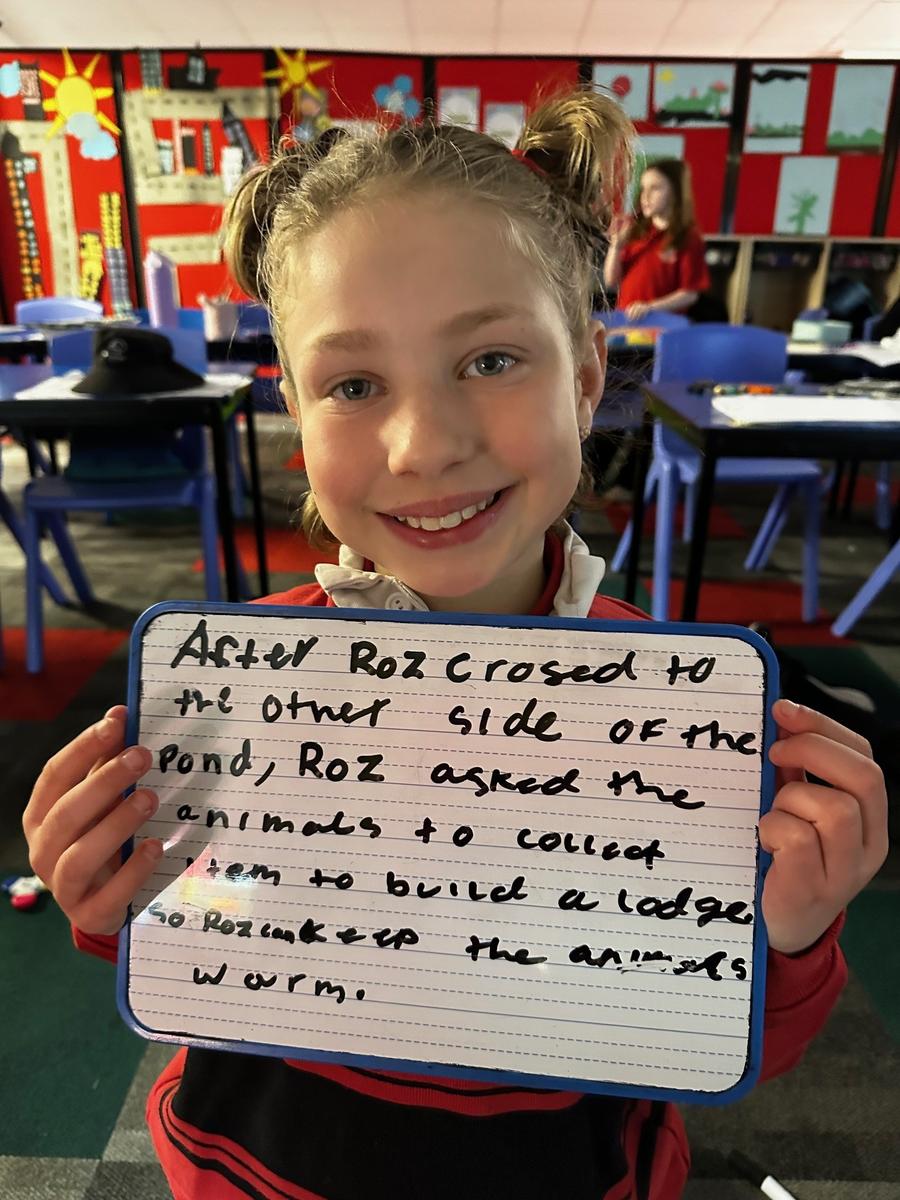 After Roz crosed to
the other side of the
pond, Roz asked the
animals to collect
item to build a lodge
so Roz can keep the animals
warm.